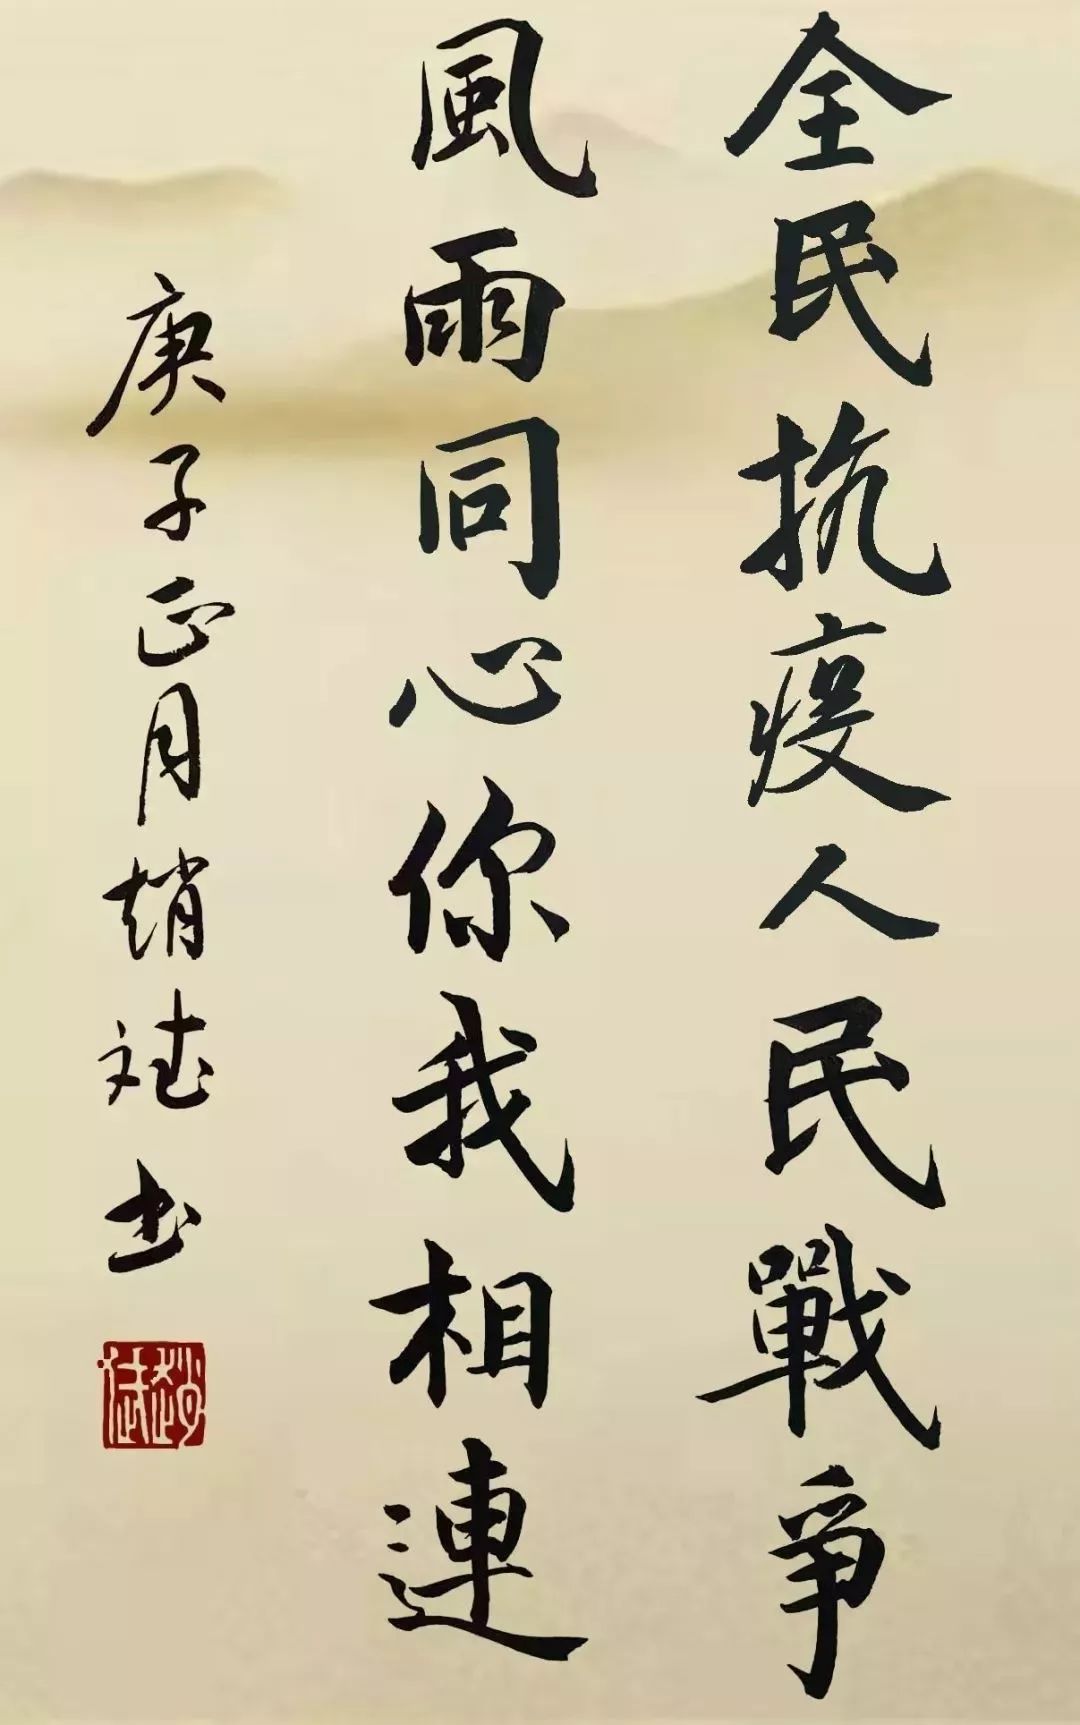 全民抗疫人民戰爭
風雨同心你我相連
庚子正月趙斌书